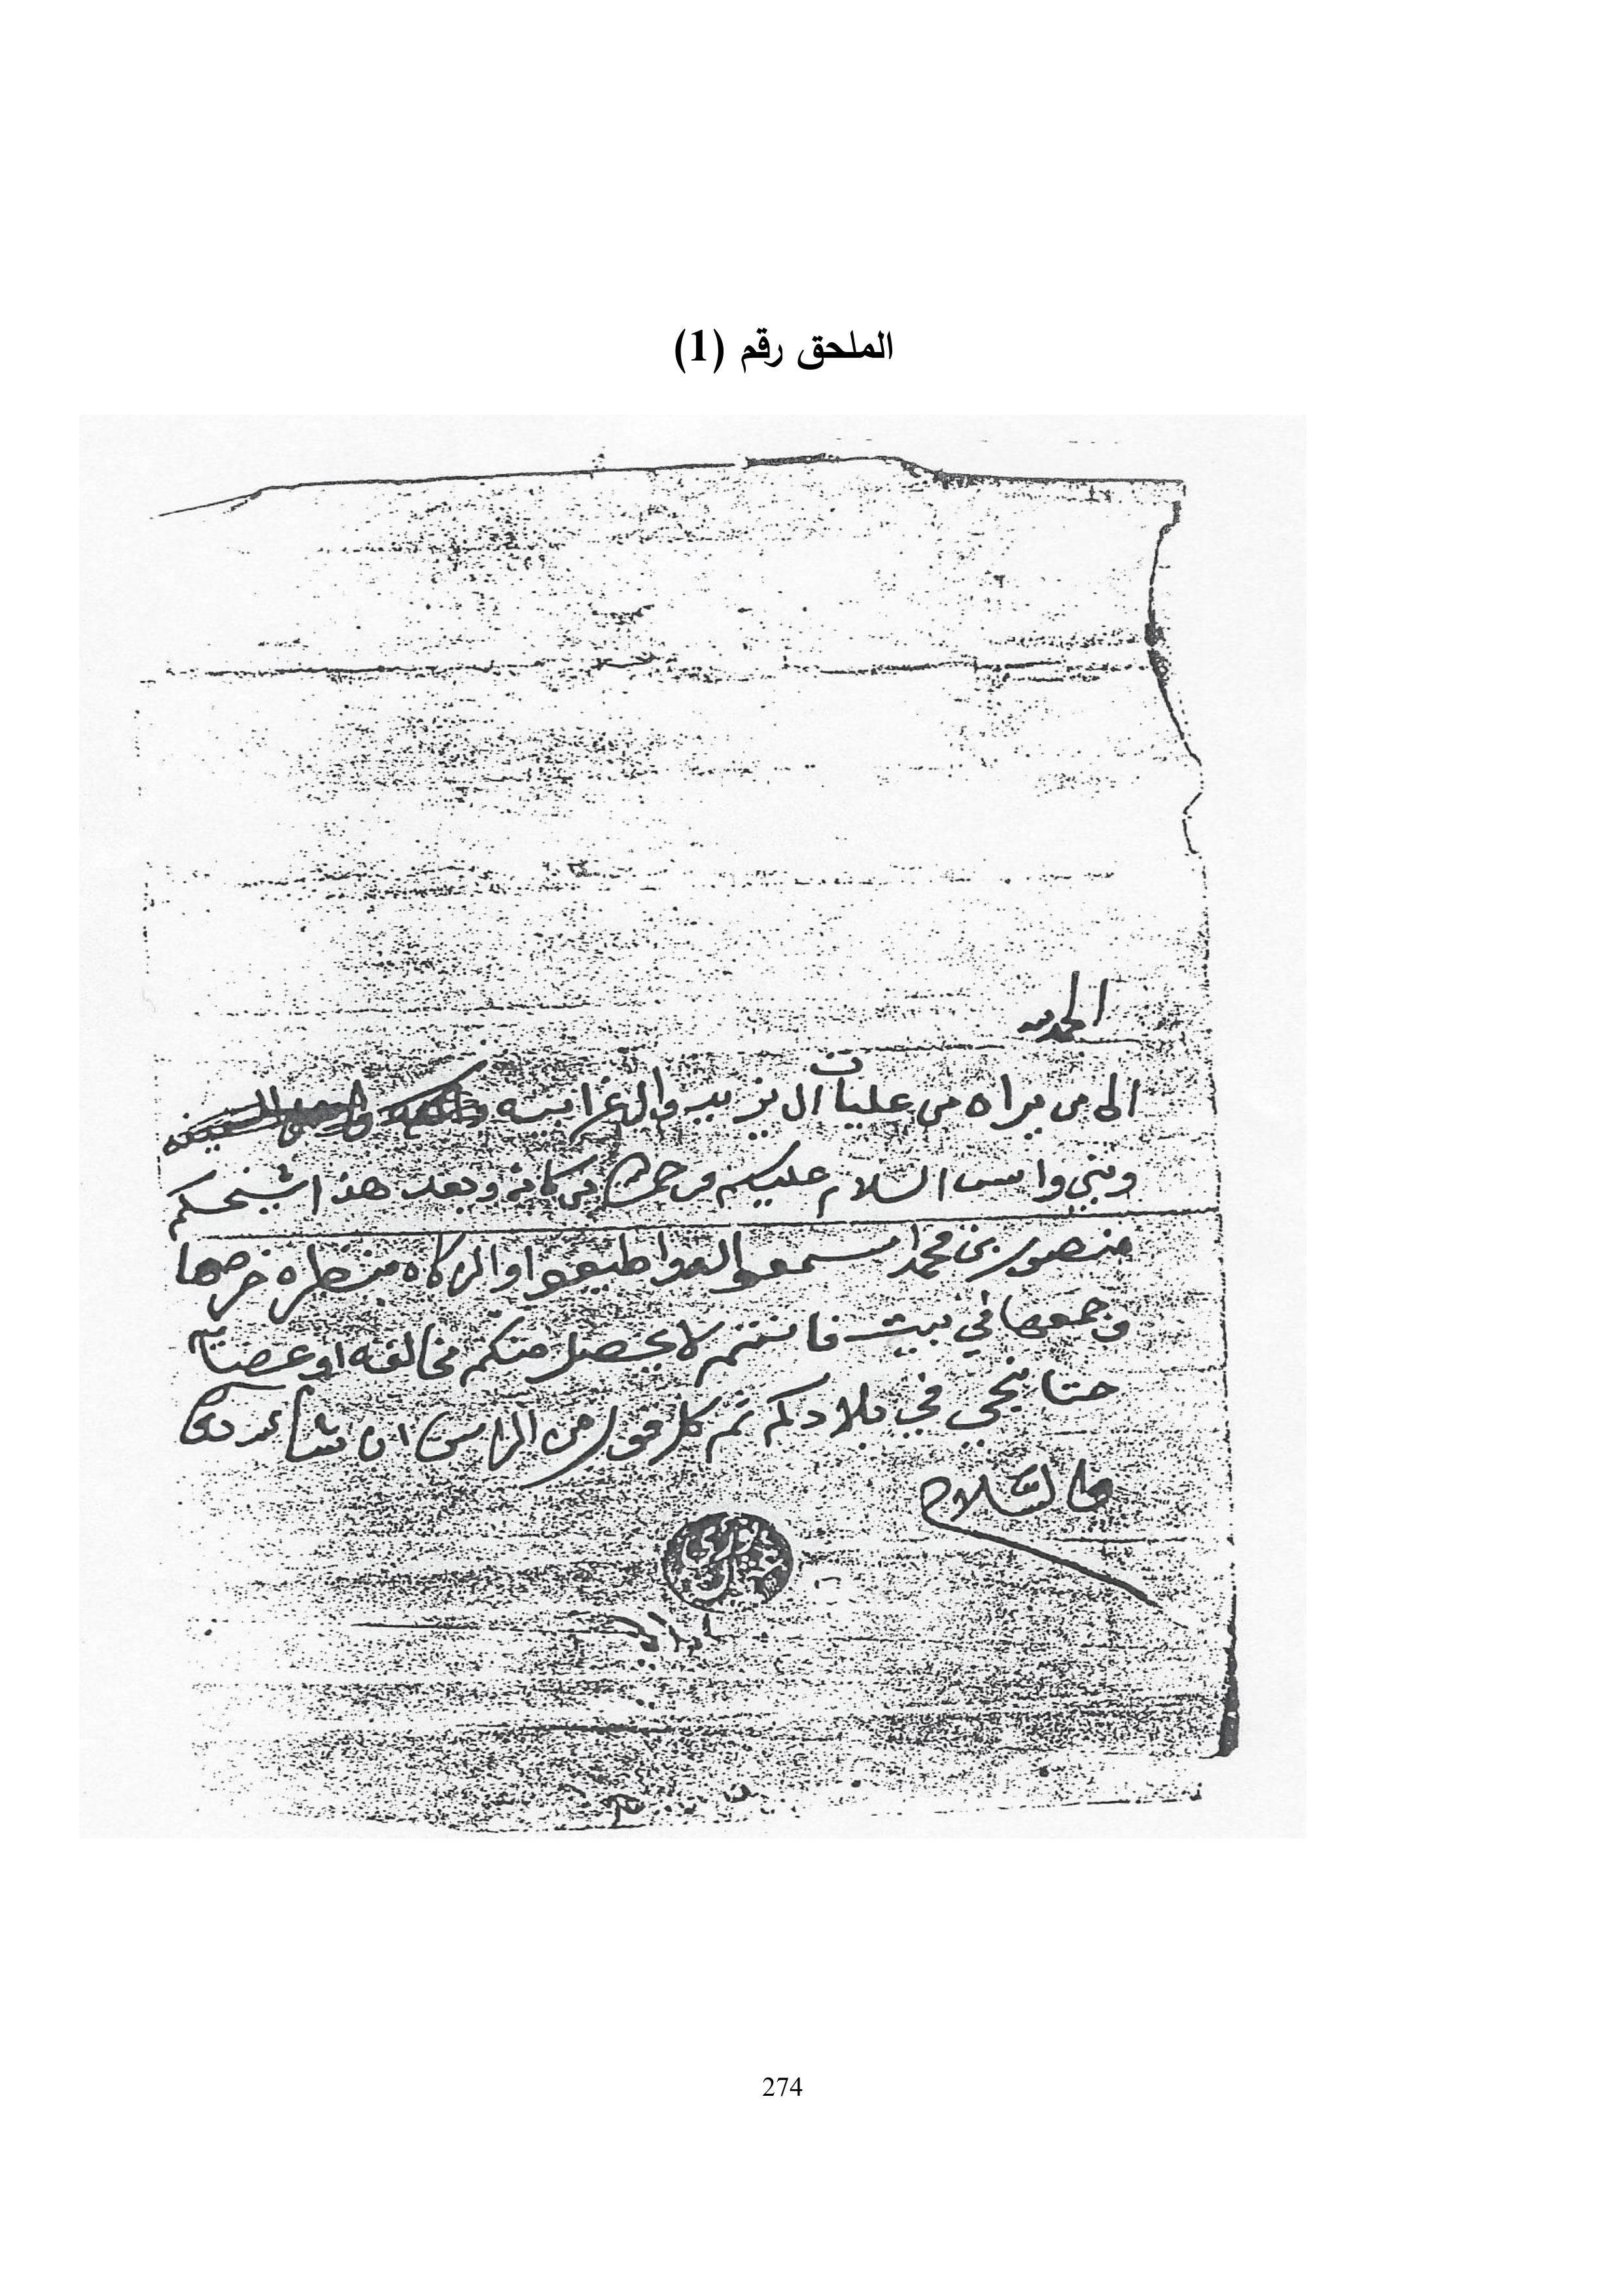 الملحق رقم (1)
الحمد لله
الى من يراه من عليات ال يزيد والغرانيه
وبني وامس السلام عليكم ورحمة الله بركاته وبعد هذا شيخكم
منصور بن محمد اسمعوا له واطيعوا والزكاه
وجمعوها في بيت فانتم لا يحصل منكم مخالفه او عصيان
حتا نجي في بلادكم ثم كل قول من الراس ان شا الله
والسلام
274